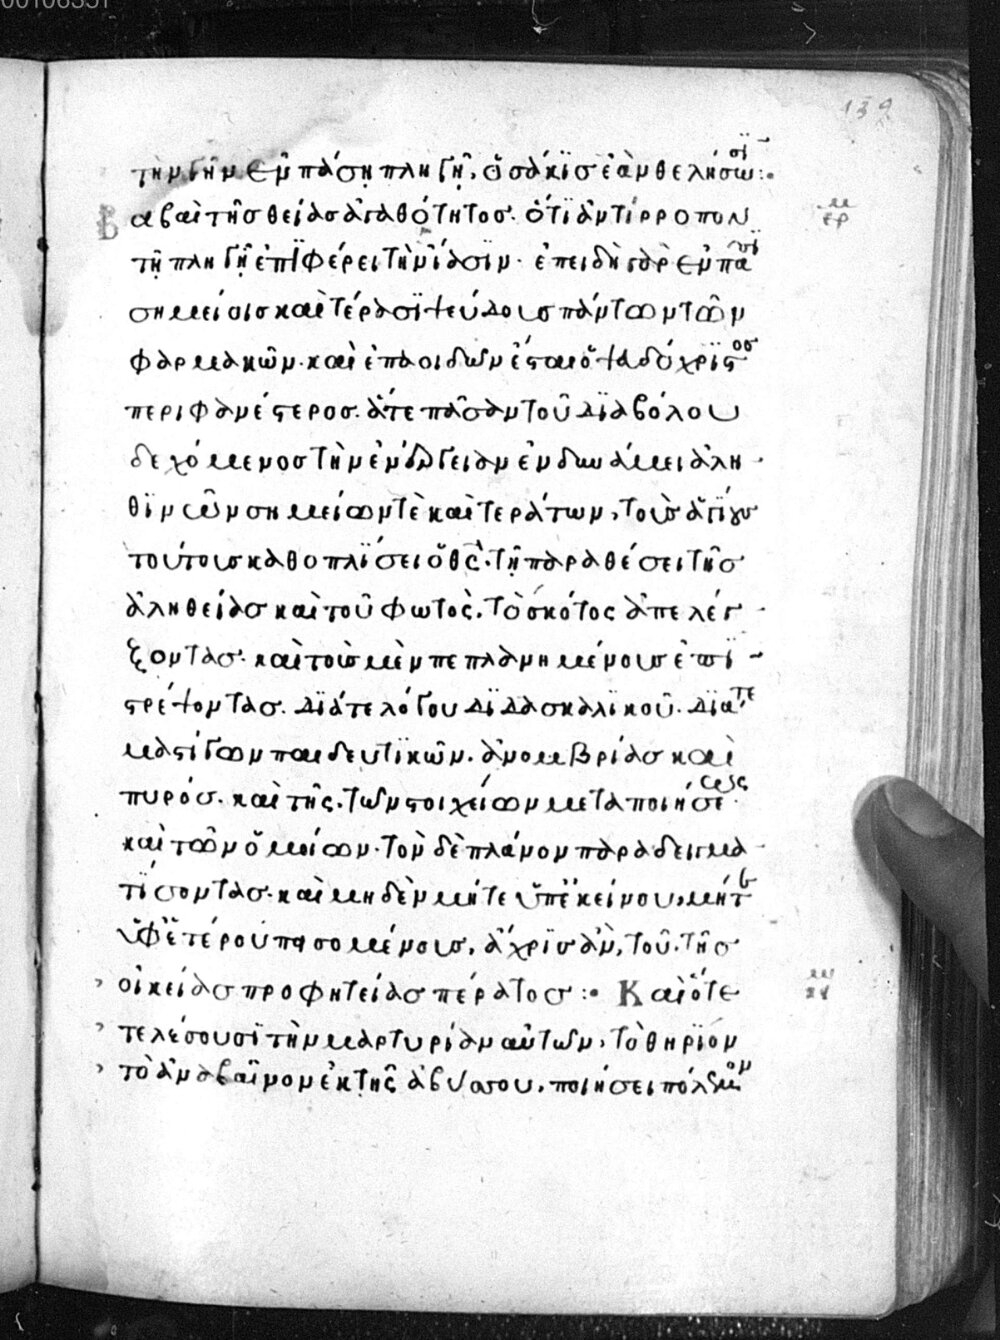 139
τὴν γῆν ἐν πάσῃ πληγῇ, ὁσάκϊς ἐὰν θελήσωσϊ:·
Βαβαὶ τῆς θείας ἀγαθότητος· ὅτϊ ἀντίρροπον
τῇ πληγῇ ἐπϊφέρει τὴν ἴασϊν· ἐπειδὴ γὰρ ἐν πᾶσϊ
σημείοις καὶ τέρασϊ ψεύδους πάντων τῶν
φαρμακῶν· καὶ ἐπαοιδων ἔσται ὁ ψαδόχρϊστος
περιφανέστερος· ἅτε πᾶσαν τοῦ δϊαβόλου
δεχόμενος τὴν ἐνέργειαν ἐν δυνάμει ἀλη
θϊνῶν σημείων τὲ καὶ τεράτων, τοὺς ἁγίους
τούτους καθοπλϊσει ὁ θς· τῇ παραθέσει τῆς
ἀληθείας καὶ τοῦ φωτὸς· τὸ σκότος ἀπελέγ
ξοντας· καὶ τοὺς μὲν πεπλανημένους ἐπϊ
στρέψοντας· δϊά τε λόγου δϊδασκαλϊκοῦ· δϊά τε
μαστίγων παιδευτϊκῶν· ἀνομβρίας καὶ
πυρός· καὶ τῆς· των στοιχείων μεταποιήσεως·
καὶ τῶν ὁμοίων· τὸν δὲ πλάνον παραδειγμα
τϊσοντας· καὶ μηδὲν μήτε ὑπ' ἐκείνου, μήτε
ὑφ' ἑτέρου πασομένους, ἄχρϊς ἂν, τοῦ· τῆς
οἰκείας προφητείας πέρατος:· Καὶ ὅτε
τελέσουσϊ τὴν μαρτυρίαν αὐτων, τὸ θηρϊον
τὸ ἀναβαῖνον ἐκ τῆς ἀβύσσου, ποιήσει πόλεμον